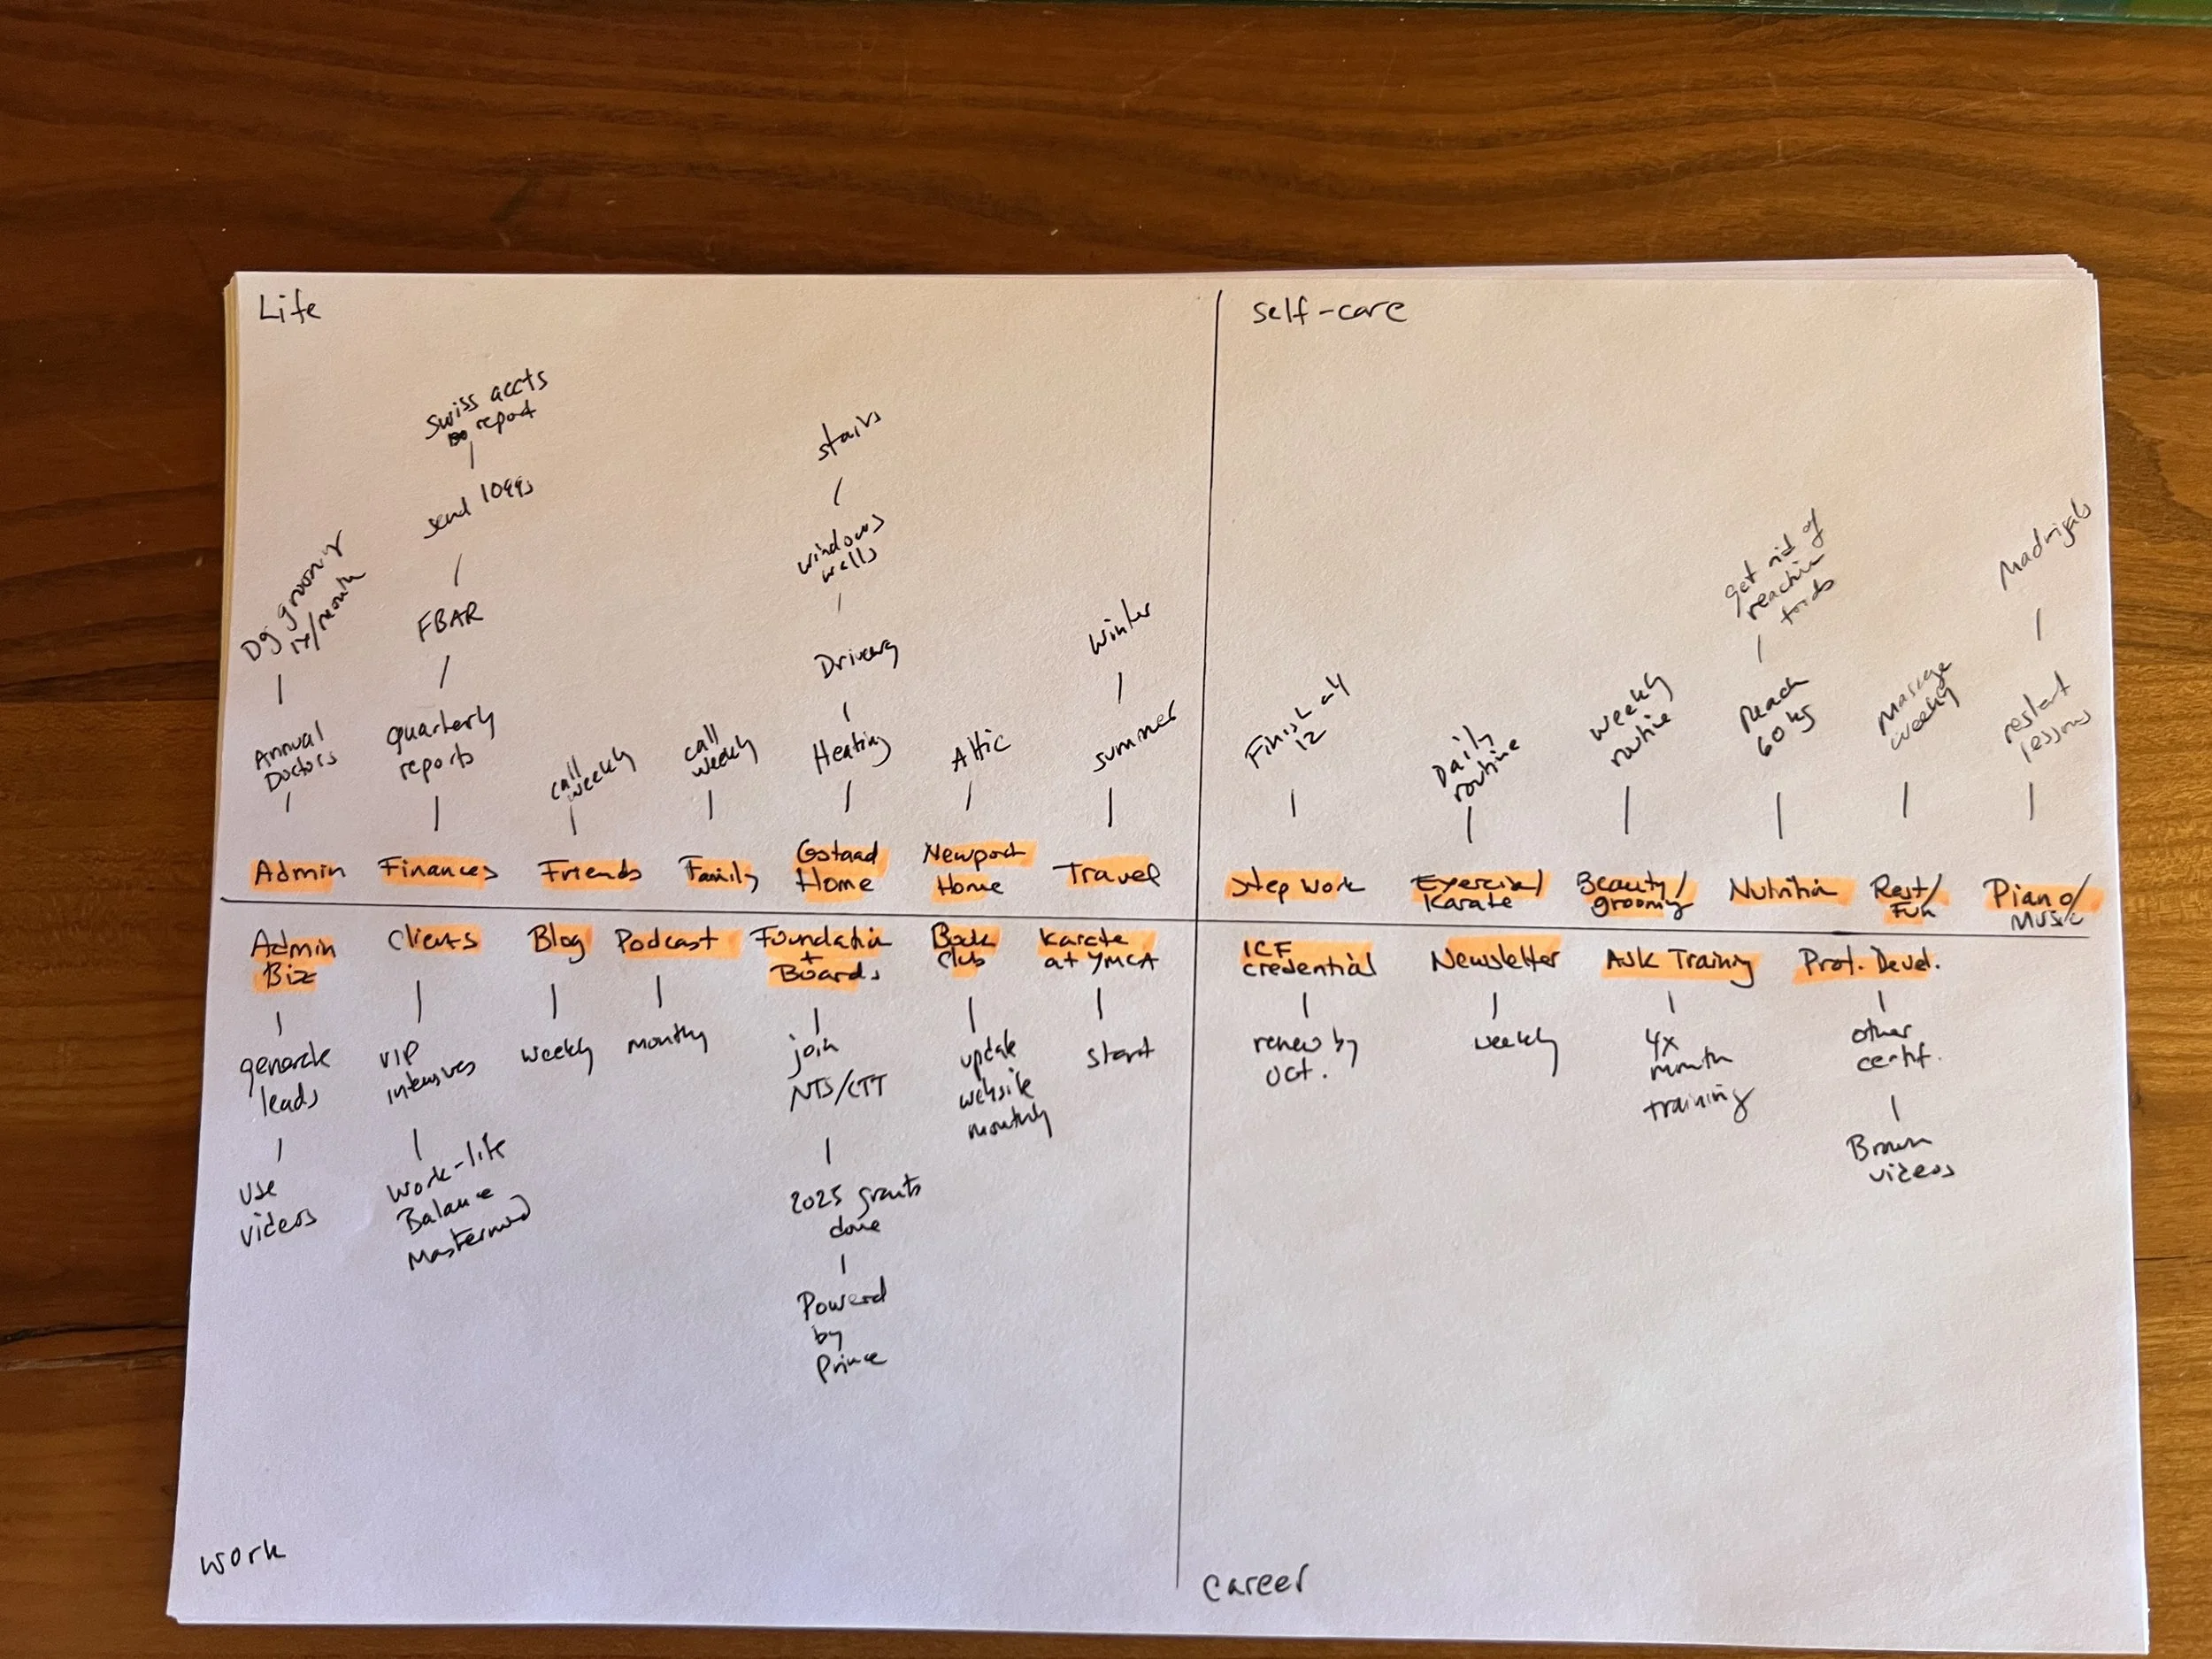 Life
Swiss accts
report
send 1099s
FBAR
quarterly
reports
Finances
Dog grooming
1x/month
Annual
Doctors
Admin
call
weekly
Friends
call
weekly
Family
stairs
windows
walls
Heating
Gstaad
Home
Attic
Newport
Home
Winter
summer
Travel
self-care
Finish all
12
Step Work
Daily
routine
Exercise/
Karate
weekly
routine
Beauty/
grooming
get rid of
reactive
foods
Reach
60 kg
Nutrition
Massage
weekly
Rest/
Fun
Madrigals
restart
lessons
Piano/
Music
Admin
Biz
generate
leads
use
videos
Clients
VIP
intensives
Work-life
Balance
Mastermind
Blog
weekly
Podcast
monthly
Foundation
+
Boards
join
NTS/CTT
2025 grants
done
Powered
by
Prince
Book
Club
update
website
monthly
Karate
at YMCA
start
Work
ICF
credential
renew by
Oct.
Newsletter
weekly
Training
4x
month
training
Prof. Devel.
other
certif.
Brown
videos
Career